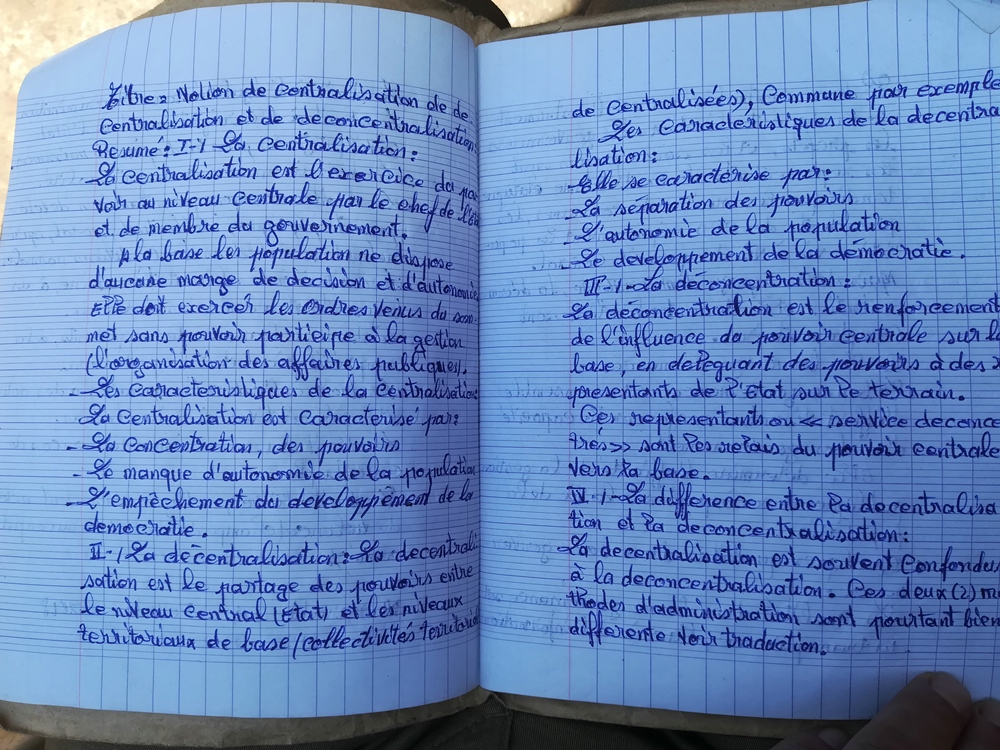 Titre: Notion de centralisation de de
centralisation et de deconcentralisation
Resumé: I-/ La centralisation:
La centralisation est l'exercice du pou
voir au niveau centrale par le chef de l'Etat
et de membre du gouvernement.
A la base les population ne dispose
d'aucune marge de decision et d'autonomie
Elle doit exercer les ordres venus du som-
met sans pouvoir participe à la gestion
(l'organisation des affaires publiques).
- Les caracteristiques de la centralisation
La centralisation est caracterisé par:
- La concentration, des pouvoirs
- Le manque d'autonomie de la population
- L'empêchement du developpement de la
democratie.
II-/ La decentralisation: La decentrali
sation est le partage des pouvoirs entre
le niveau central (Etat) et les niveaux
territoriaux de base (collectivités territorial
de centralisées), Commune par exemple
Les caractéristiques de la decentra
lisation:
Elle se caractérise par:
- La séparation des pouvoirs
- L'autonomie de la population
- Le developpement de la démocratie.
III-/-La déconcentration:
La déconcentration est le renforcement
de l'influence du pouvoir centrale sur l
base, en deleguant des pouvoirs à des r
presentants de l'Etat sur le terrain.
Ces representants ou << service deconce
trés>> sont les relais du pouvoir centrale
vers la base.
IV-/-La difference entre la decentralisa
tion et la deconcentralisation:
La decentralisation est souvent confondu
à la deconcentralisation. Ces deux (2) me
thodes d'administration sont pourtant bien
differente voir traduction.